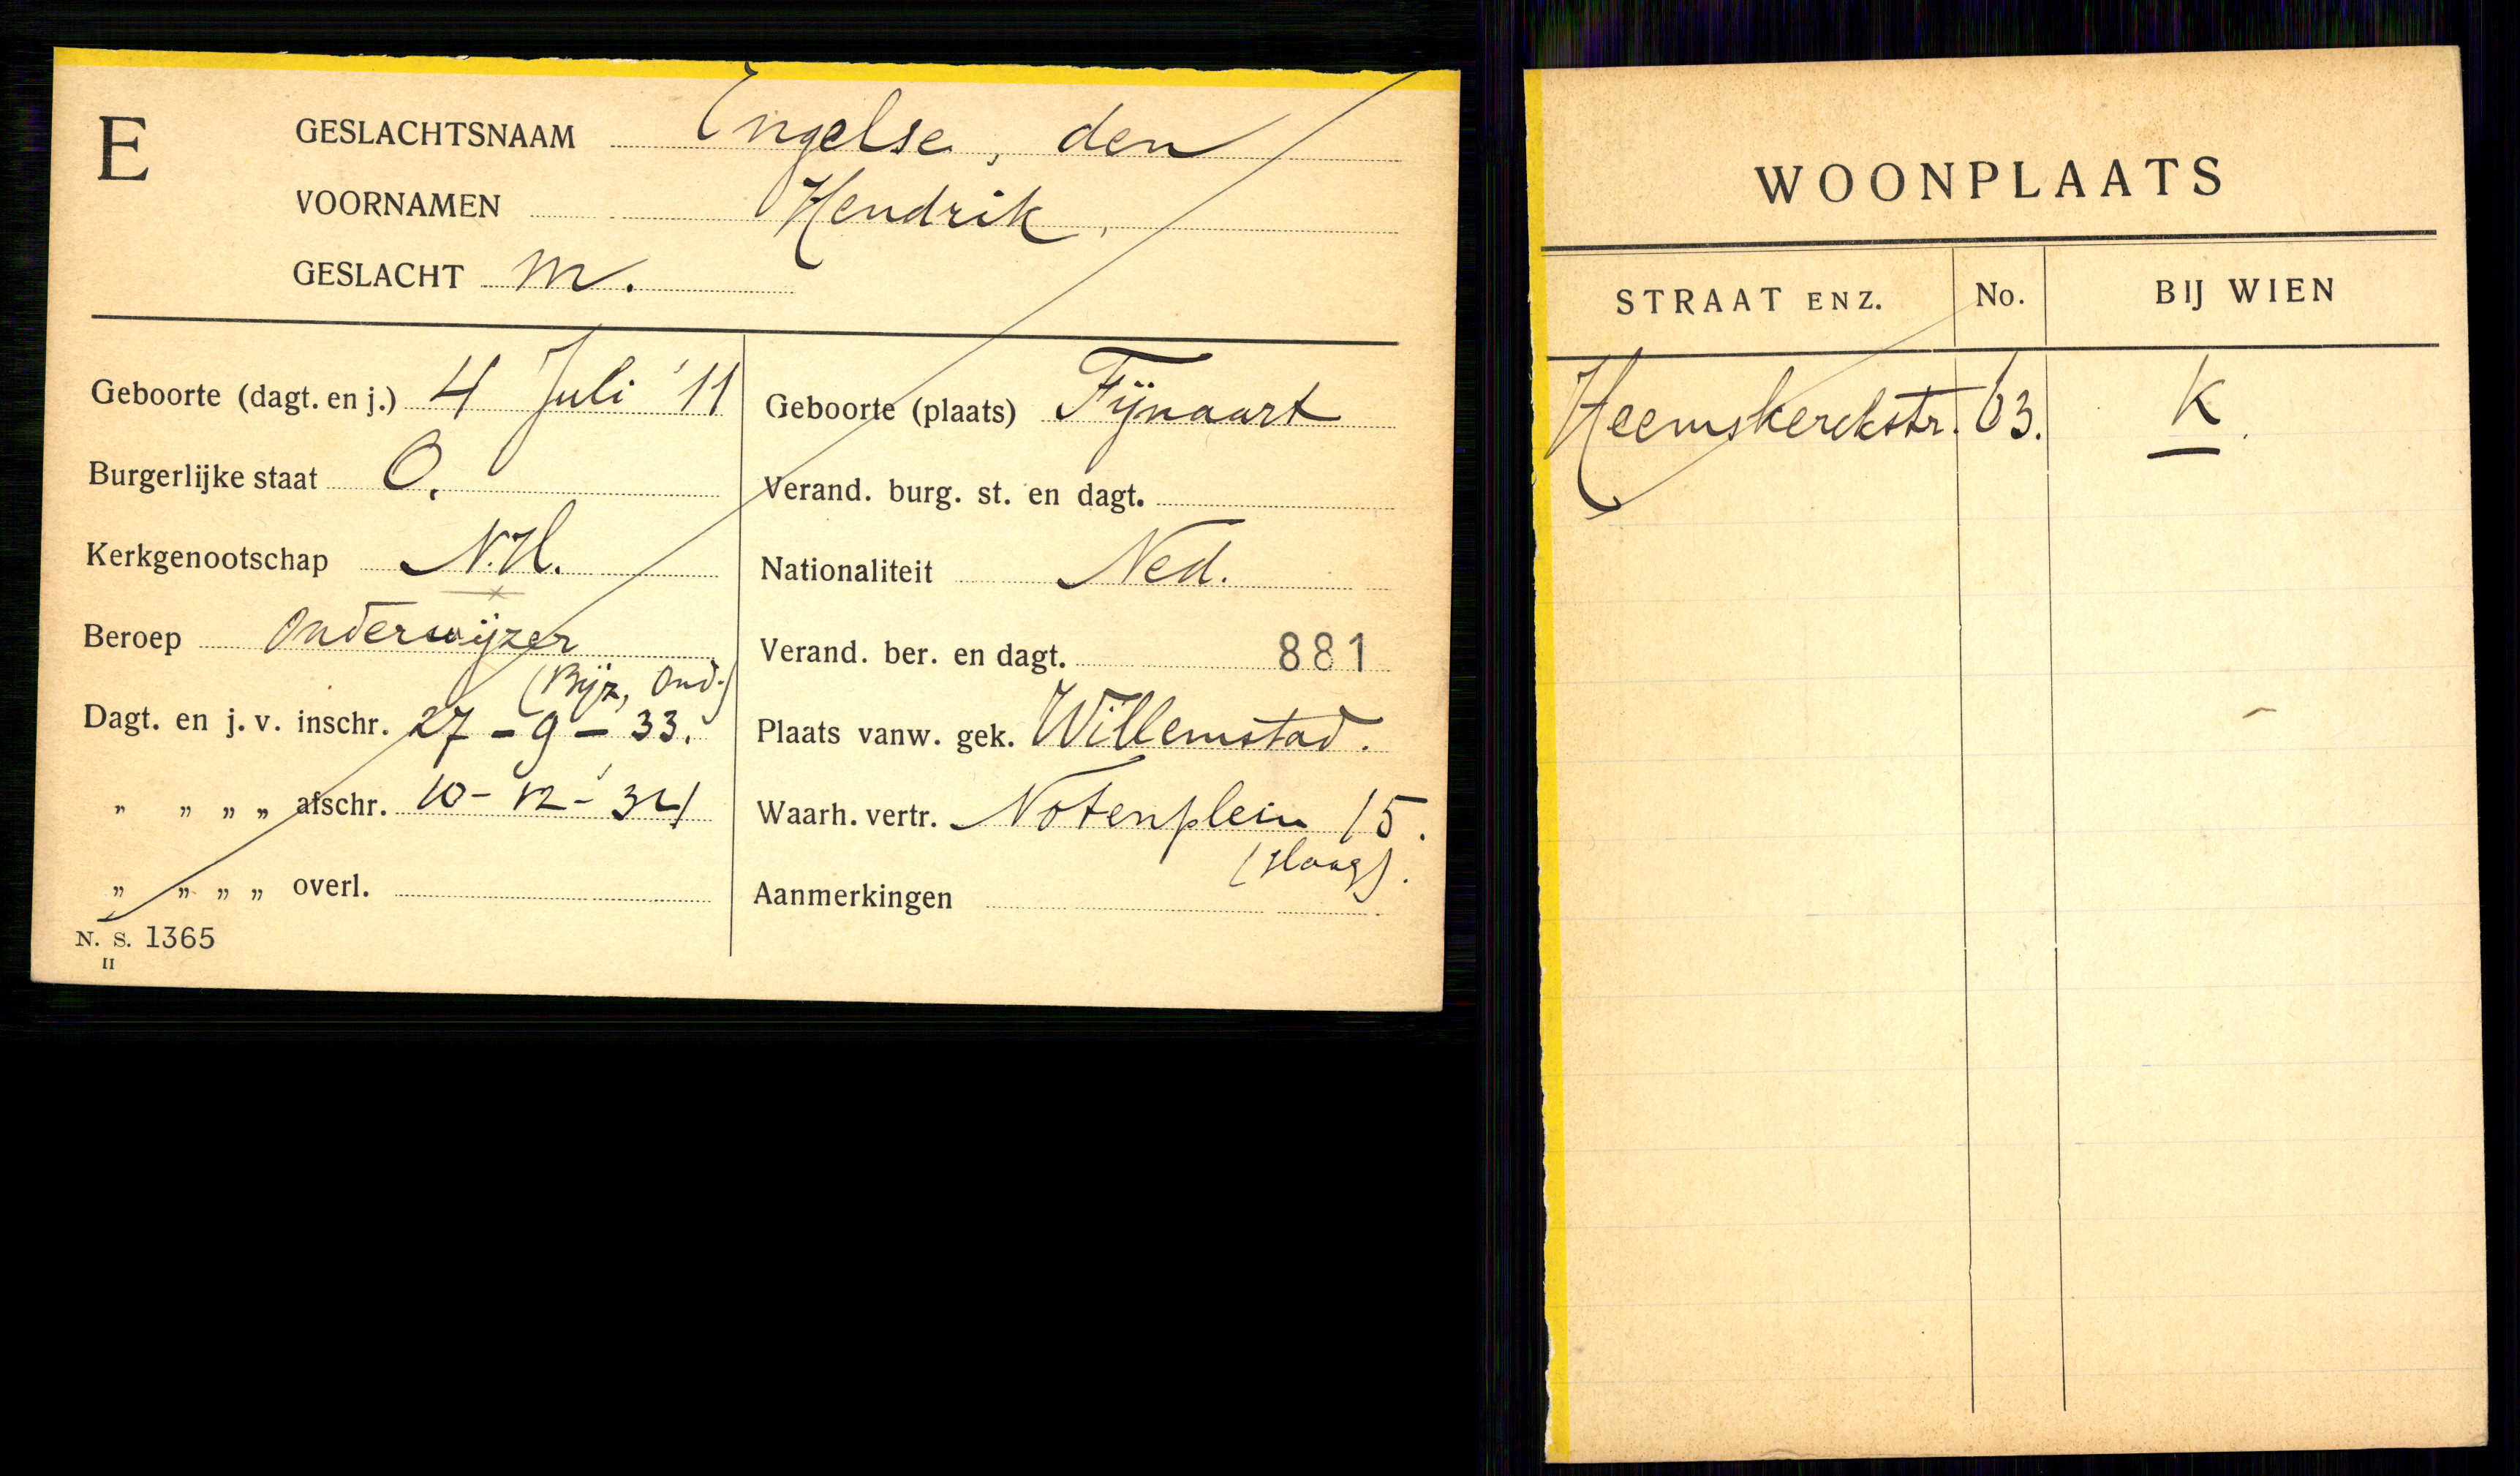 E
GESLACHTSNAAM Engelse, den
VOORNAMEN Hendrik,
GESLACHT M.
Geboorte (dagt. en j.) 4 Juli '11
Burgerlijke staat O.
Kerkgenootschap N.H.
Beroep Onderwijzer
(Bijz. Ond.)
Dagt. en j. v. inschr. 27-9-'33.
„ „ „ „ afschr. 10-12-'34
„ „ „ „ overl.
N. S. 1365
II
Geboorte (plaats) Fijnaart
Verand. burg. st. en dagt.
Nationaliteit Ned.
Verand. ber. en dagt. 881
Plaats vanw. gek. Willemstad.
Waarh. vertr. Notenplein 15.
(Haag).
Aanmerkingen
WOONPLAATS
STRAAT ENZ. No. BIJ WIEN
Heemskerckstr. 63. K.